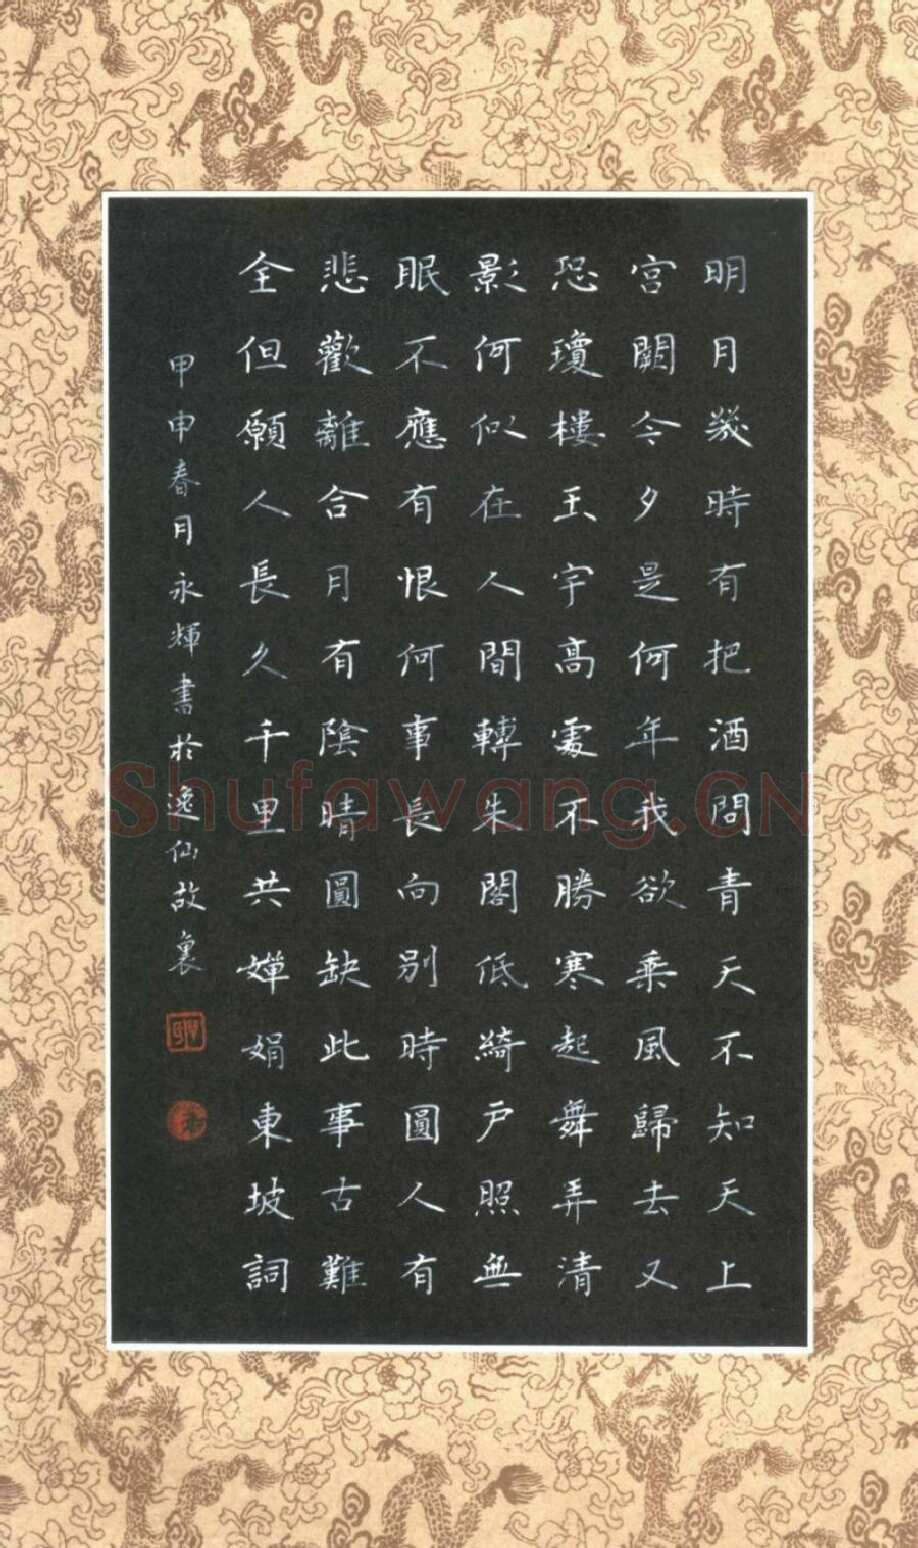 明月幾時有把酒問青天不知天上
宮闕今夕是何年我欲乘風歸去又
恐瓊樓玉宇高處不勝寒起舞弄清
影何似在人間轉朱閣低綺戶照無
眠不應有恨何事長向別時圓人有
悲歡離合月有陰晴圓缺此事古難
全但願人長久千里共嬋娟東坡詞
甲申春月永輝書於逸仙故裏
Shufawang.CN